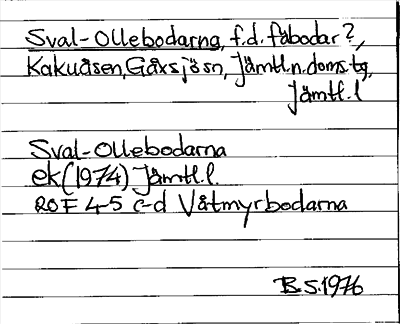 Sval-Ollebodarna, f.d. fäbodar?,
Kakuåsen, Gåxsjö sn, Jämtl. n. doms. tg,
Jämtl. l
Sval-Ollebodarna
ek (1974) Jämtl. l.
ROF 4-5 c-d Våtmyrbodarna
B.S. 1976